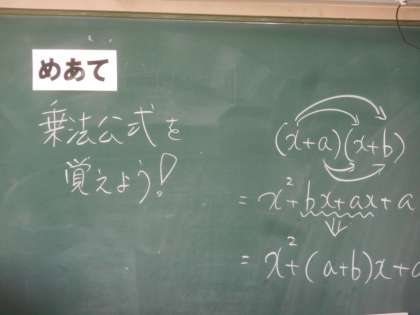 めあて
乗法公式を
覚えよう!
(x+a)(x+b)
= x²+bx+ax+a
= x²+(a+b)x+a